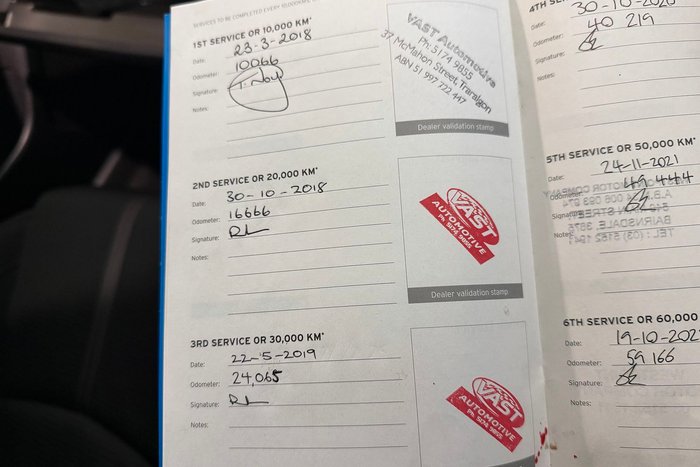 SERVICES TO BE COMPLETED EVERY 10,000KMS
1ST SERVICE OR 10,000 KM*
Date: 23-3-2018
Odometer: 10066
Signature:
Notes:
VAST Automotive
Ph: 5174 9855
37 McMahon Street, Traralgon
ABN 51 997 722 447
Dealer validation stamp
2ND SERVICE OR 20,000 KM*
Date: 30-10-2018
Odometer: 16666
Signature:
Notes:
VAST
AUTOMOTIVE
Ph: 5174 9855
Dealer validation stamp
3RD SERVICE OR 30,000 KM*
Date: 22-5-2019
Odometer: 24,065
Signature:
Notes:
VAST
AUTOMOTIVE
Ph: 5174 9855
4TH
Date: 30-10-2020
Odometer: 40 219
Signature:
Notes:
5TH SERVICE OR 50,000 KM*
Date: 24-11-2021
Odometer: 49 444
Signature:
Notes:
MOTOR COMPANY
STREET
BAIRNSDALE, 3875
TEL: (03) 5152 1941
6TH SERVICE OR 60,000
Date: 19-10-202
Odometer: 59 166
Signature:
Notes: